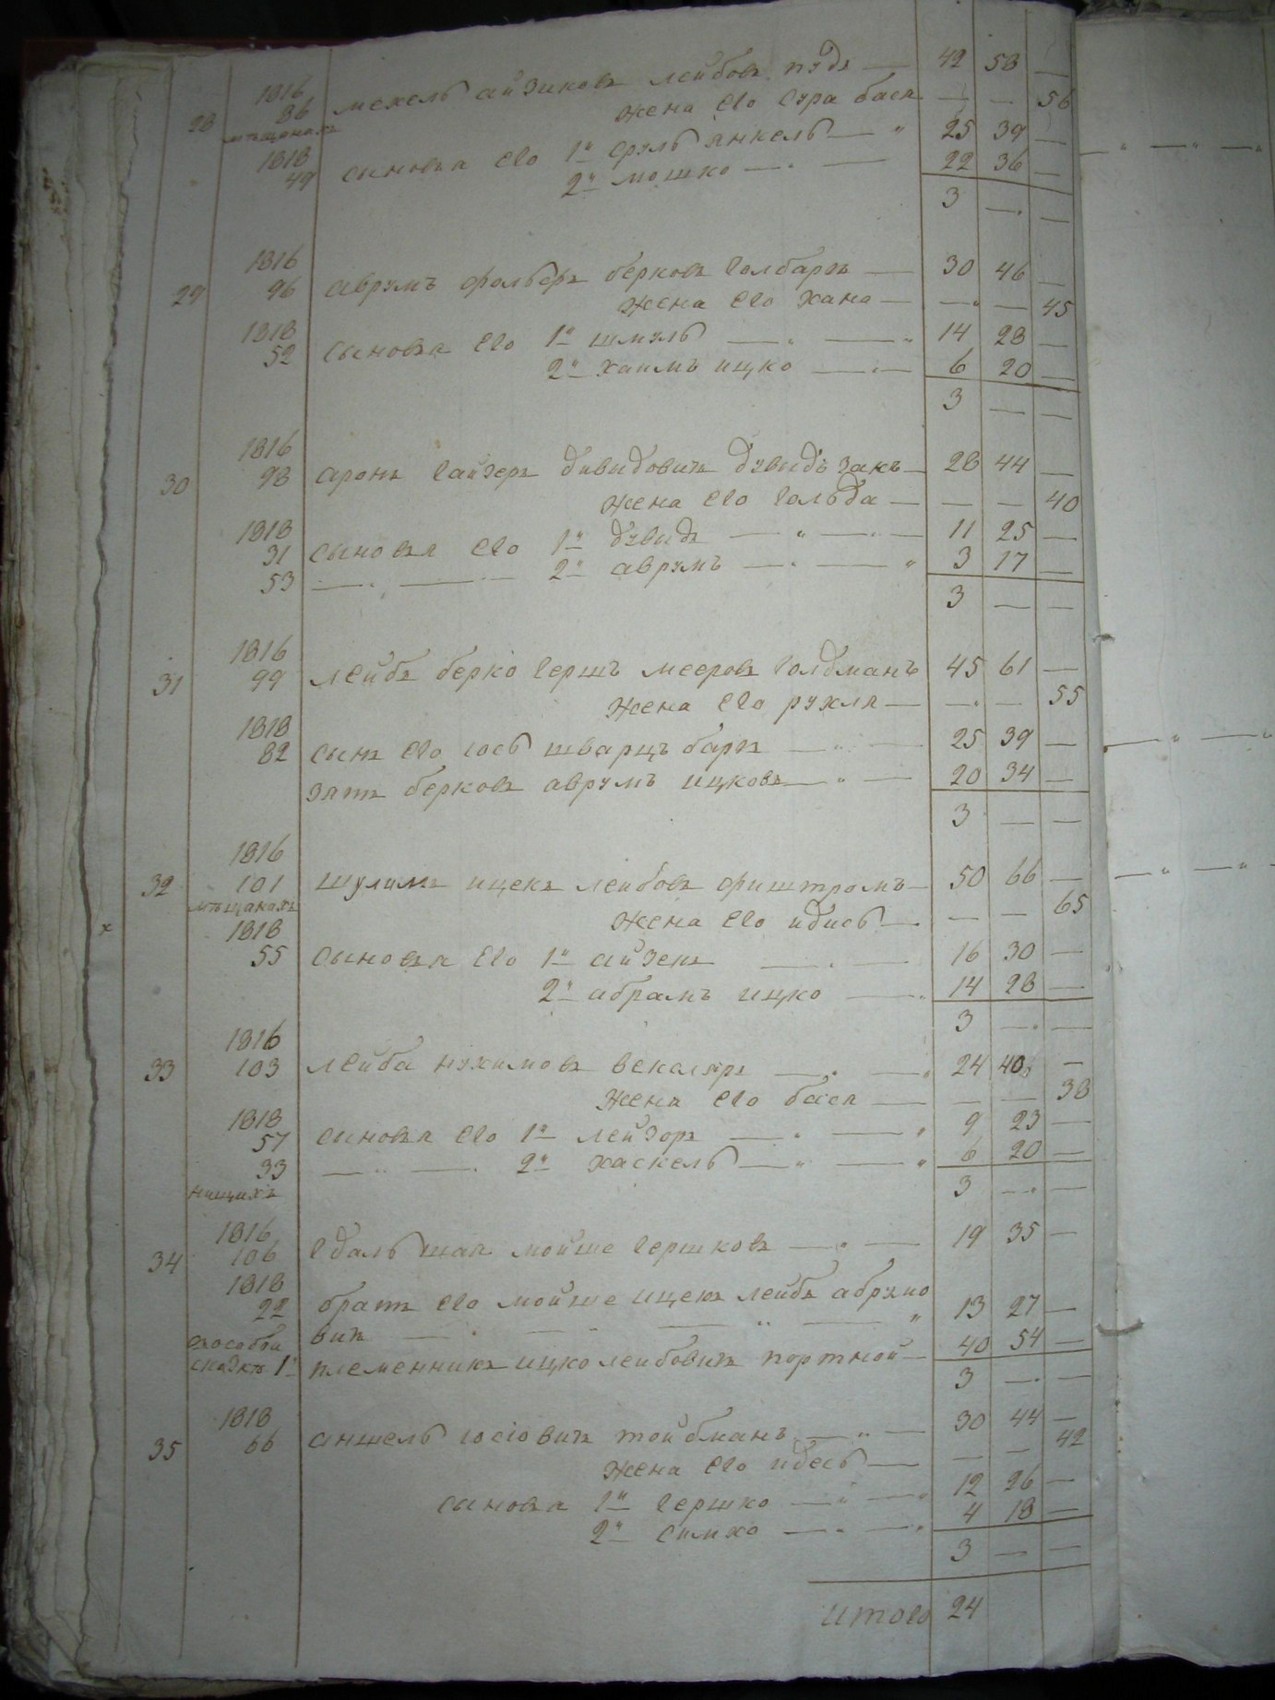 1816
28 86 мехель айзиковъ лейбовъ пудъ — 42 58 —
мѣщанахъ жена его сура бася — — — 56
1818 сыновья его 1й сруль янкель — " 25 39 —
49 2й мошко — . — 22 36 —
3 — —
1816
29 96 аврумъ фольберъ берковъ голбаргъ — 30 46 —
жена его хана — — — 45
1818
52 сыновья его 1й шмуль — . — 14 28 —
2й хаимъ ицко — . — 6 20 —
3 — —
1816
30 98 аронъ гайзеръ давидовичъ дувидъ закъ — 28 44 —
жена его гольда — — — 40
1818
31 сыновья его 1й дувидъ — " — 11 25 —
53 — . — 2й аврумъ — . — " 3 17 —
3 — —
1816
31 99 лейбъ берко гершъ мееровъ голдманъ 45 61 —
жена его рухля — — — 55
1818
82 сынъ его іось шварцъ баргъ — . — 25 39 —
зять берковъ аврумъ ицковъ — " — 20 34 —
3 — —
1816
32 101 шулимъ ицекъ лейбовъ фриштромъ — 50 66 —
мѣщанахъ жена его идись — — — 65
1818
55 сыновья его 1й айзекъ — . — 16 30 —
2й абрамъ ицко — . 14 28 —
3 — —
1816
33 103 лейба нухимовъ векслеръ — . — 24 40 —
жена его бася — — — 38
1818
57 сыновья его 1й лейзоръ — . — " 9 23 —
33 — " — . 2й хаскель — " — " 6 20 —
нищихъ 3 — —
1816
34 106 гдаль шая мойше гершковъ — . — 19 35 —
1818
22 братъ его мойше ицекъ лейбъ абрумо
вичъ — . — — " — " 13 27 —
особой
сказкѣ 1й племенникъ ицко лейбовичъ портной — 40 54 —
3 — —
1818
35 66 аншель іосіовичъ тойбманъ — " — 30 44 —
жена его идесь — — — 42
сыновья 1й гершко — " — " 12 26 —
2й симхо — . — " 4 18 —
3 — —
итого 24